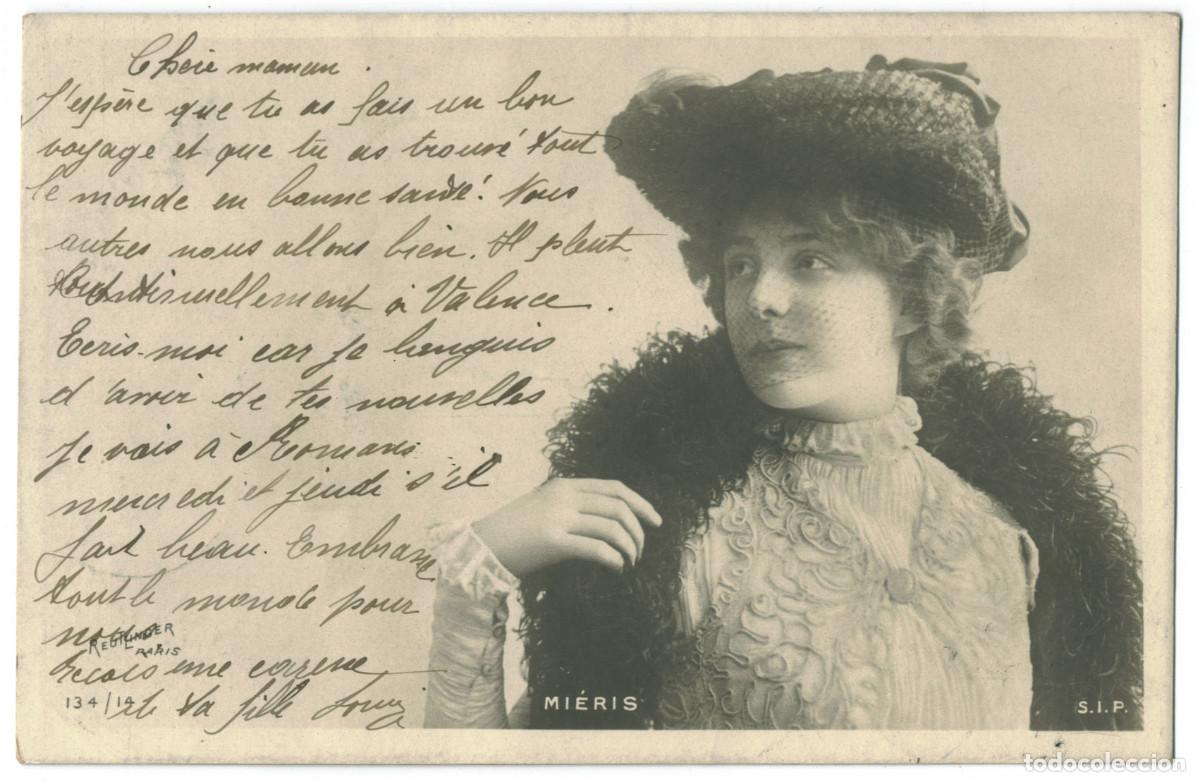 Chère maman.
J'espère que tu as fais un bon
voyage et que tu as trouvé tout
le monde en bonne santé! Nous
autres nous allons bien. Il pleut
continuellement à Valence.
Ecris-moi car je languis
d'avoir de tes nouvelles
je vais à Romans
mercredi et jeudi s'il
fait beau. Embrasse
tout le monde pour
nous
REUTLINGER
PARIS
Recois une caresse
134/14
de ta fille
MIÉRIS
S.I.P.
todocoleccion